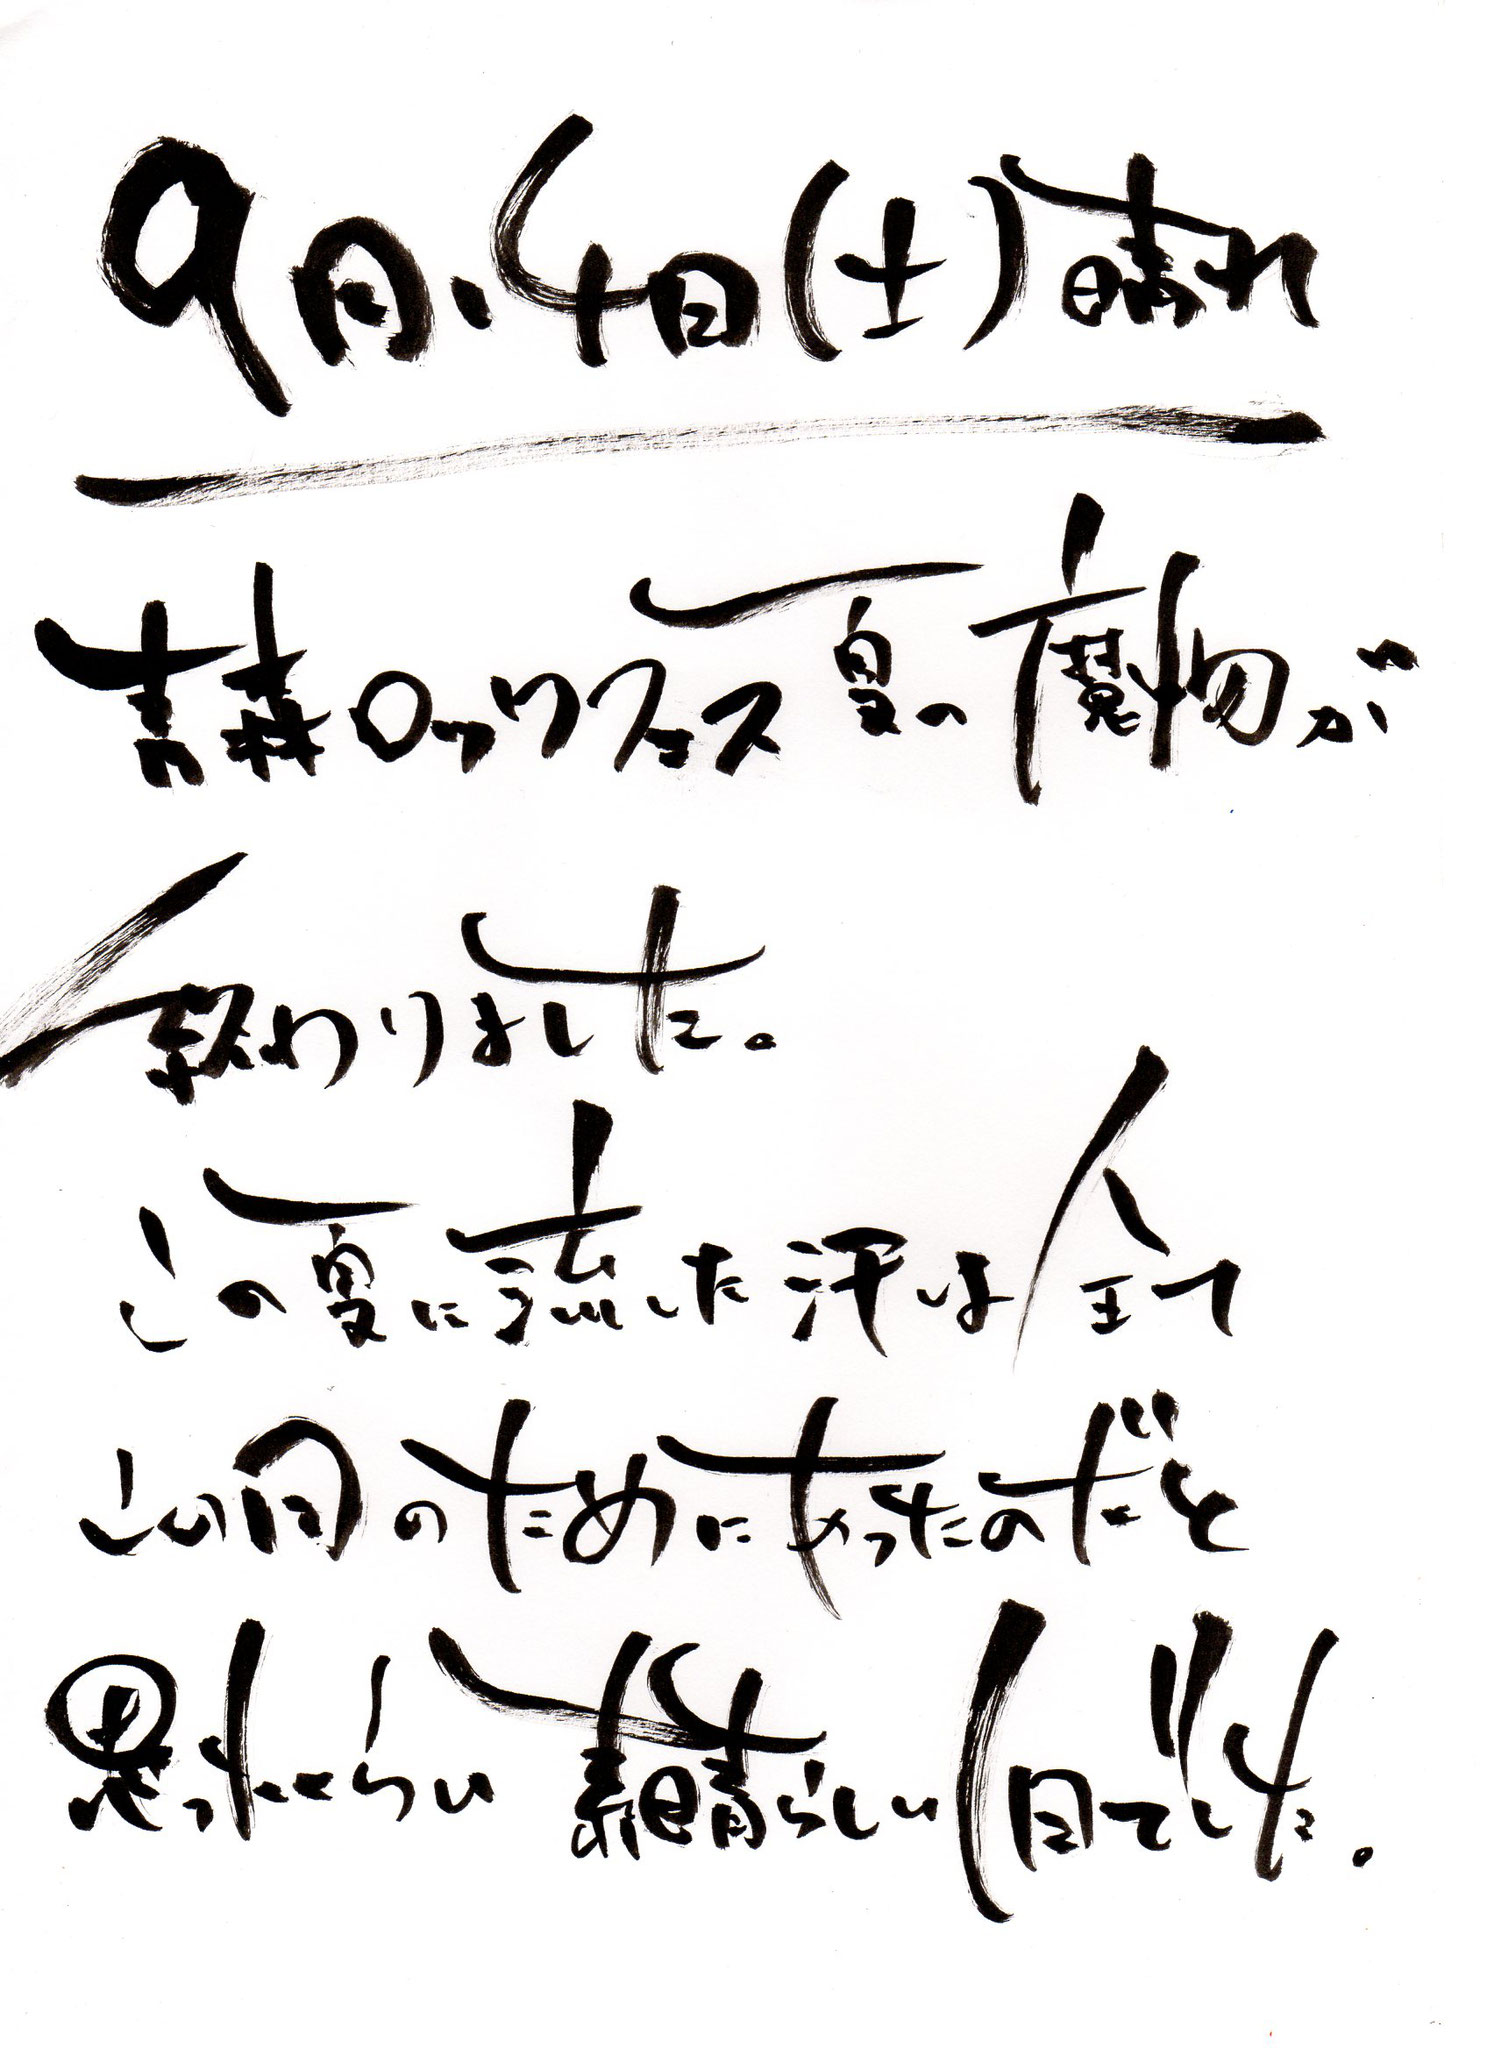 9月、4日(土)晴れ
青森ロックフェス夏の魔物が
終わりました。
この夏に流した汗は全て
この日のためにあったのだと
思ったくらい素晴らしい1日でした。